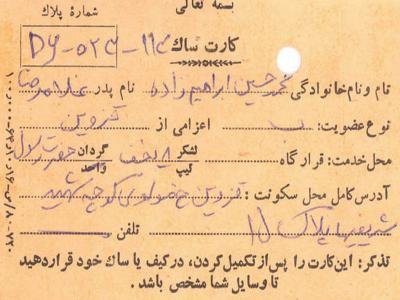 بسمه تعالی
شمارهٔ پلاک
DY-۵۲۳-۱۱۴
کارت ساك
نام و نام خانوادگی محمد حسین ابراهیم زاده نام پدر غلامرضا
نوع عضویت: ب اعزامی از قزوین
محل خدمت: قرارگاه لشکر تیپ گردان واحد حضرت رسول
آدرس کامل محل سکونت: قزوین خ مولوی کوچه شهید
پلاک ۱۵ تلفن
تذکر: این کارت را پس از تکمیل کردن، در کیف یا ساك خود قرار دهید
تا وسایل شما مشخص باشد .